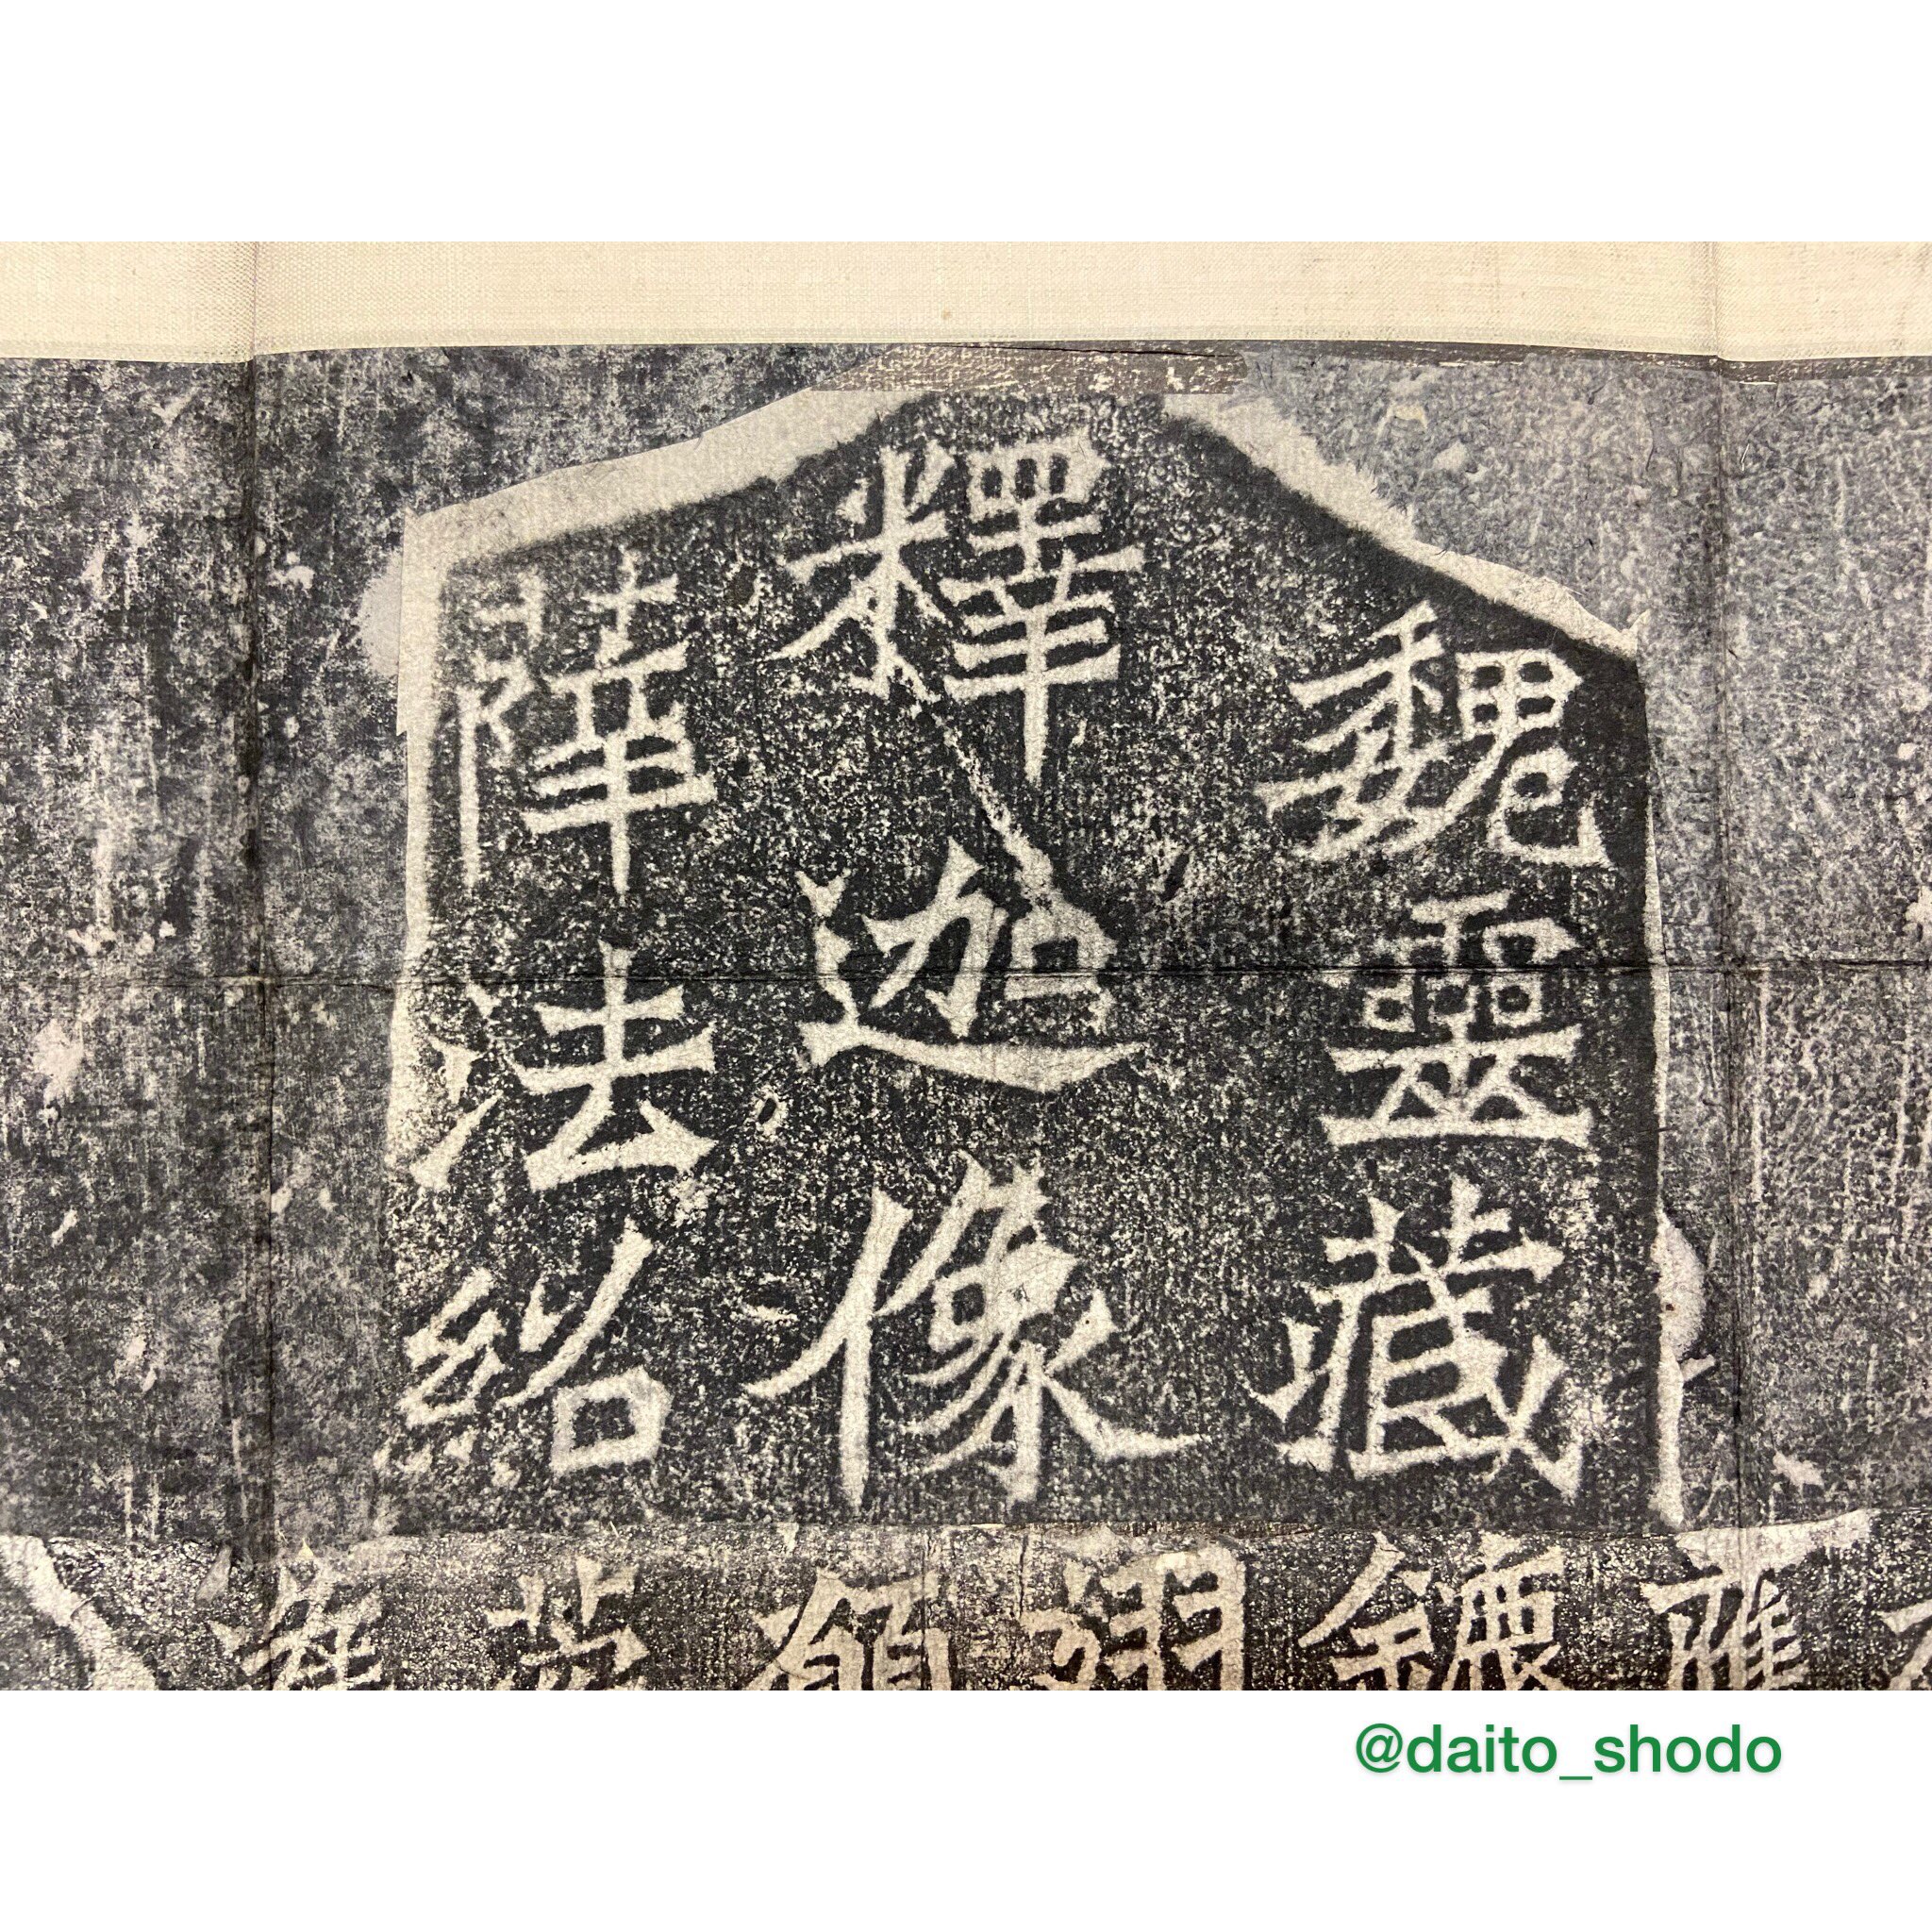 魏靈藏
釋迦像
薛法紹
@daito_shodo